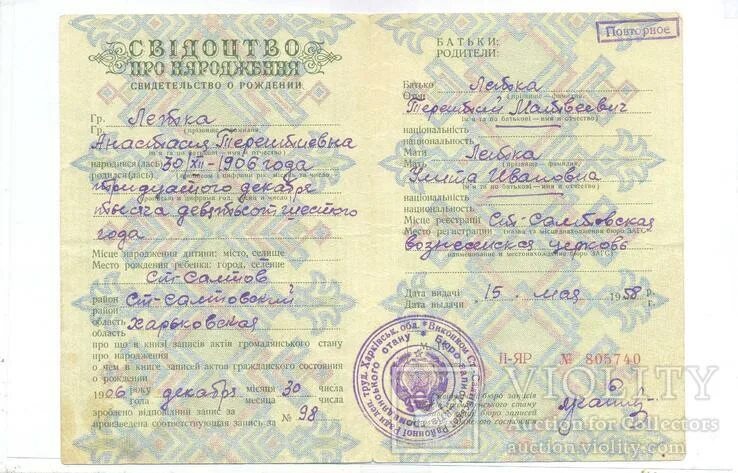 СВІДОЦТВО
ПРО НАРОДЖЕННЯ
СВИДЕТЕЛЬСТВО О РОЖДЕНИИ
Гр. Летка
Гр. (прізвище — фамилия)
Анастасия Терентиевна
(ім'я та по батькові — имя и отчество)
народився(лась) 30/XII - 1906 года
родился(лась)
тридцатого декабря
тысяча девятьсот шестого
года
Місце народження дитини: місто, селище
Место рождения ребенка: город, селение
Ст-Салтов
район Ст-Салтовский
район
область Харьковская
область
про що в книзі записів актів громадянського стану
про народження
о чем в книге записей актов гражданского состояния
о рождении
1906 року декабря місяця 30 числа
года месяца числа
зроблено відповідний запис за
произведена соответствующая запись за № 98
Повторное
БАТЬКИ:
РОДИТЕЛИ:
Батько Летка
Отец (прізвище — фамилия)
Терентий Матвеевич
(ім'я та по батькові — имя и отчество)
національність
национальность
Мати Летка
Мать (прізвище — фамилия)
Улита Ивановна
(ім'я та по батькові — имя и отчество)
національність
национальность
Місце реєстрації Ст-Салтовская
Место регистрации (назва та місцезнаходження бюро ЗАГС)
вознесенская церковь
наименование и местонахождение бюро ЗАГС
Дата видачі 15 мая 1958 р.
Дата выдачи г.
II-ЯР № 805740
бюро записів
стану
бюро записей
состояния
VIOLITY
Auction for Collectors
auction.violity.com